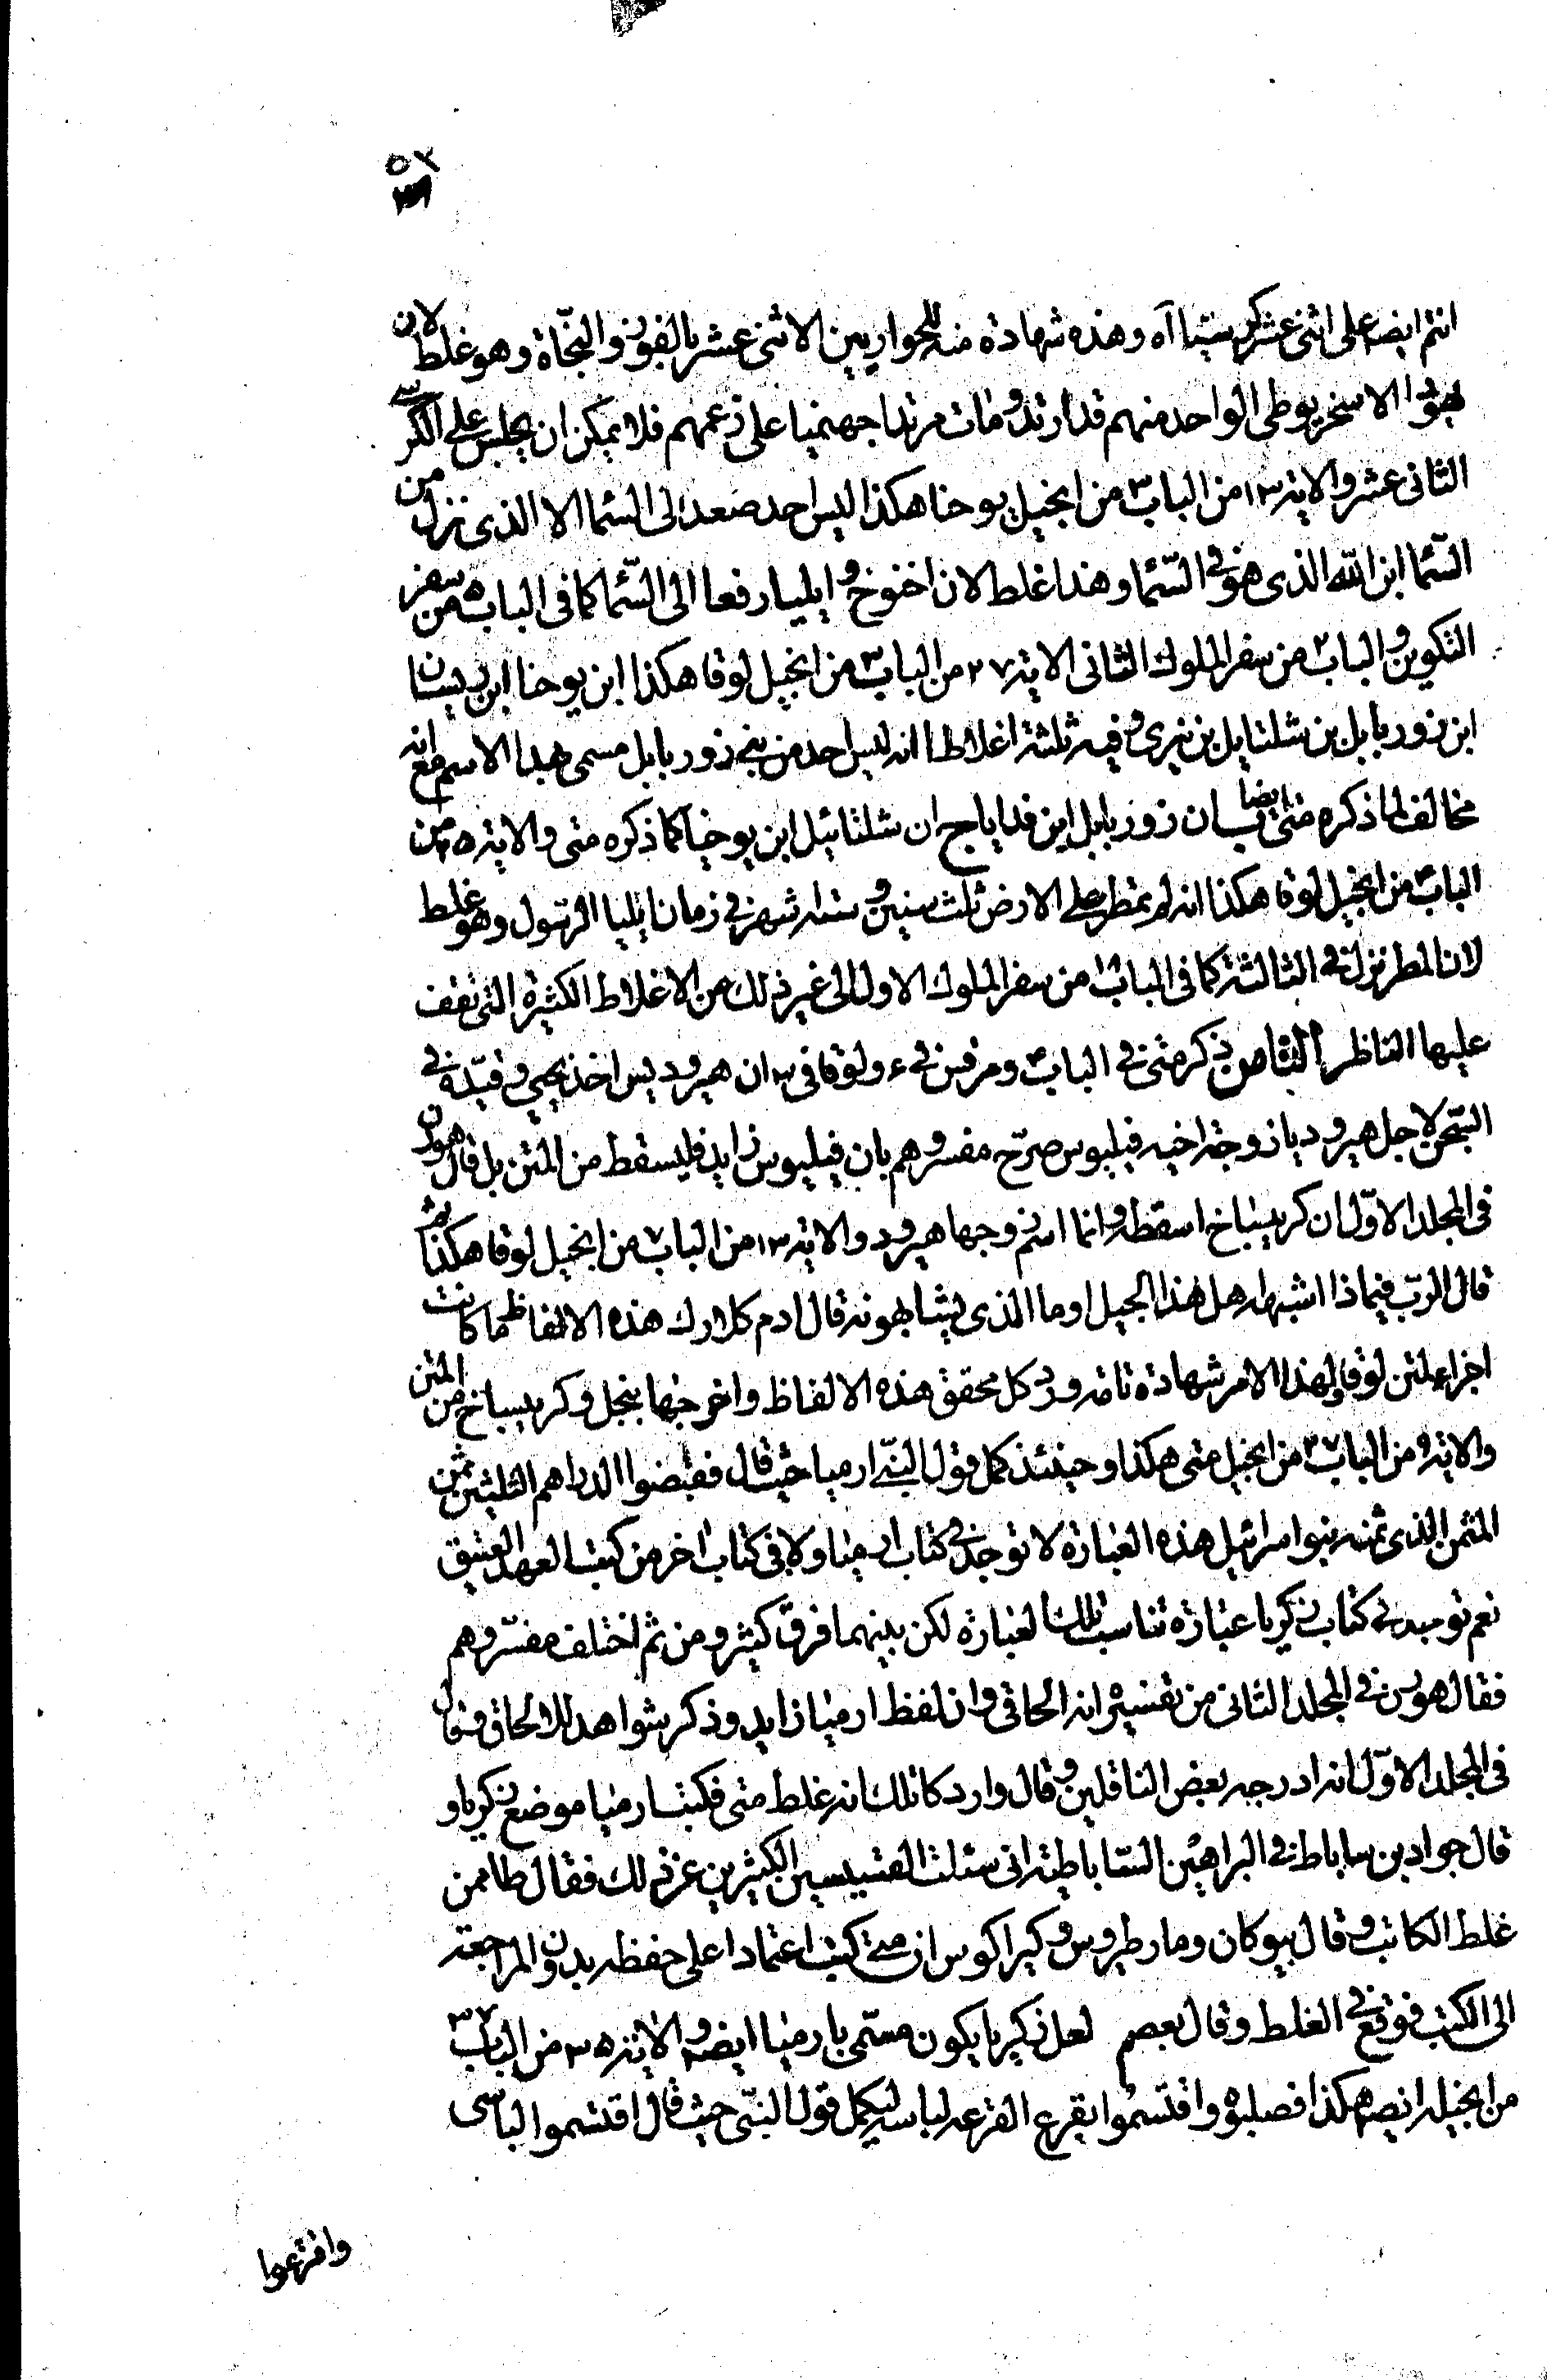 ٥٢
انتم ايضا على اثنى عشر كرسيا اه وهذه شهادة منه للحواريين الاثنى عشر بالفوز والنجاة وهو غلط لان
يهودا الاسخريوطى الواحد منهم قد ارتد ومات مرتدا جهنميا على زعمهم فلا يمكن ان يجلس على الكرسى
الثانى عشر والاية ١٣ من الباب ٣ من انجيل يوحنا هكذا ليس احد صعد الى السما الا الذى نزل من
السما ابن الله الذى هو فى السما وهذا غلط لان اخنوخ وايليا رفعا الى السما كما فى الباب ٥ من سفر
التكوين والباب ٢ من سفر الملوك الثانى الاية ٢٧ من الباب ٣ من انجيل لوقا هكذا ابن يوحنا ابن ريسا
ابن زوربابل بن شلتايل بن نيرى وفيه ثلثة اغلاط ا انه ليس احد من بنى زوربابل مسمى بهذا الاسم مع انه
مخالف لما ذكره متى ايضا ب ان زوربابل ابن فدايا ج ان شلتائيل ابن يوخيا كما ذكره متى والاية ٢٥ من
الباب ٤ من انجيل لوقا هكذا انه لم تمطر على الارض ثلث سنين وستة اشهر فى زمان ايليا الرسول وهو غلط
لان المطر نزل فى الثالثة كما فى الباب ١٨ من سفر الملوك الاول الى غير ذلك من الاغلاط الكثيرة التى تقف
عليها الناظر الثامن ذكر متى فى الباب ١٤ ومرقس فى ٦ ولوقا فى ٣ ان هيروديس اخذ يحيى وقيده فى
السجن لاجل هيروديا زوجة اخيه فيلبوس صرح مفسروهم بان فيلبوس زايد فليسقط من المتن بل قال هورن
فى المجلد الاول ان كريسباخ اسقطه وانما اسم زوجها هيرود والاية ٣١ من الباب ٧ من انجيل لوقا هكذا ثم
قال الرب فيماذا اشبه اهل هذا الجيل او ما الذى يشابهونه قال ادم كلارك هذه الالفاظ ما كانت
اجزاء لمتن لوقا ولهذا الامر شهادة تامة ورد كل محقق هذه الالفاظ واخرجها بنجل وكريسباخ من المتن
والاية ٩ من الباب ٢٧ من انجيل متى هكذا وحينئذ كمل قول النبى ارميا حيث قال فقبضوا الدراهم الثلثين ثمن
المثمن الذى ثمنه بنو اسرائيل هذه العبارة لا توجد فى كتاب ارميا ولا فى كتاب اخر من كتب العهد العتيق
نعم توجد فى كتاب زكريا عبارة تناسب تلك العبارة لكن بينهما فرق كثير ومن ثم اختلف مفسروهم
فقال هورن فى المجلد الثانى من تفسيره انه الحاقى وان لفظ ارميا زايد وذكر شواهد للالحاق وقال
فى المجلد الاول انه ادرجه بعض الناقلين وقال وارد كاتلك انه غلط متى فكتب ارميا موضع زكريا و
قال جواد بن ساباط فى البراهين الساباطية انى سئلت القسيسين الكثيرين عن ذلك فقال طامن
غلط الكاتب وقال بيوكان ومارطيروس وكيراكوس ان متى كتب اعتمادا على حفظه بدون المراجعة
الى الكتب فوقع فى الغلط وقال بعضهم لعل زكريا يكون مسمى بارميا ايضا والاية ٣٥ من الباب ٢٧
من انجيله ايضا هكذا فصلبوه واقتسموا بقرع القرعة لباسه ليكمل قول النبى حيث قال اقتسموا لباسى
واقترعوا